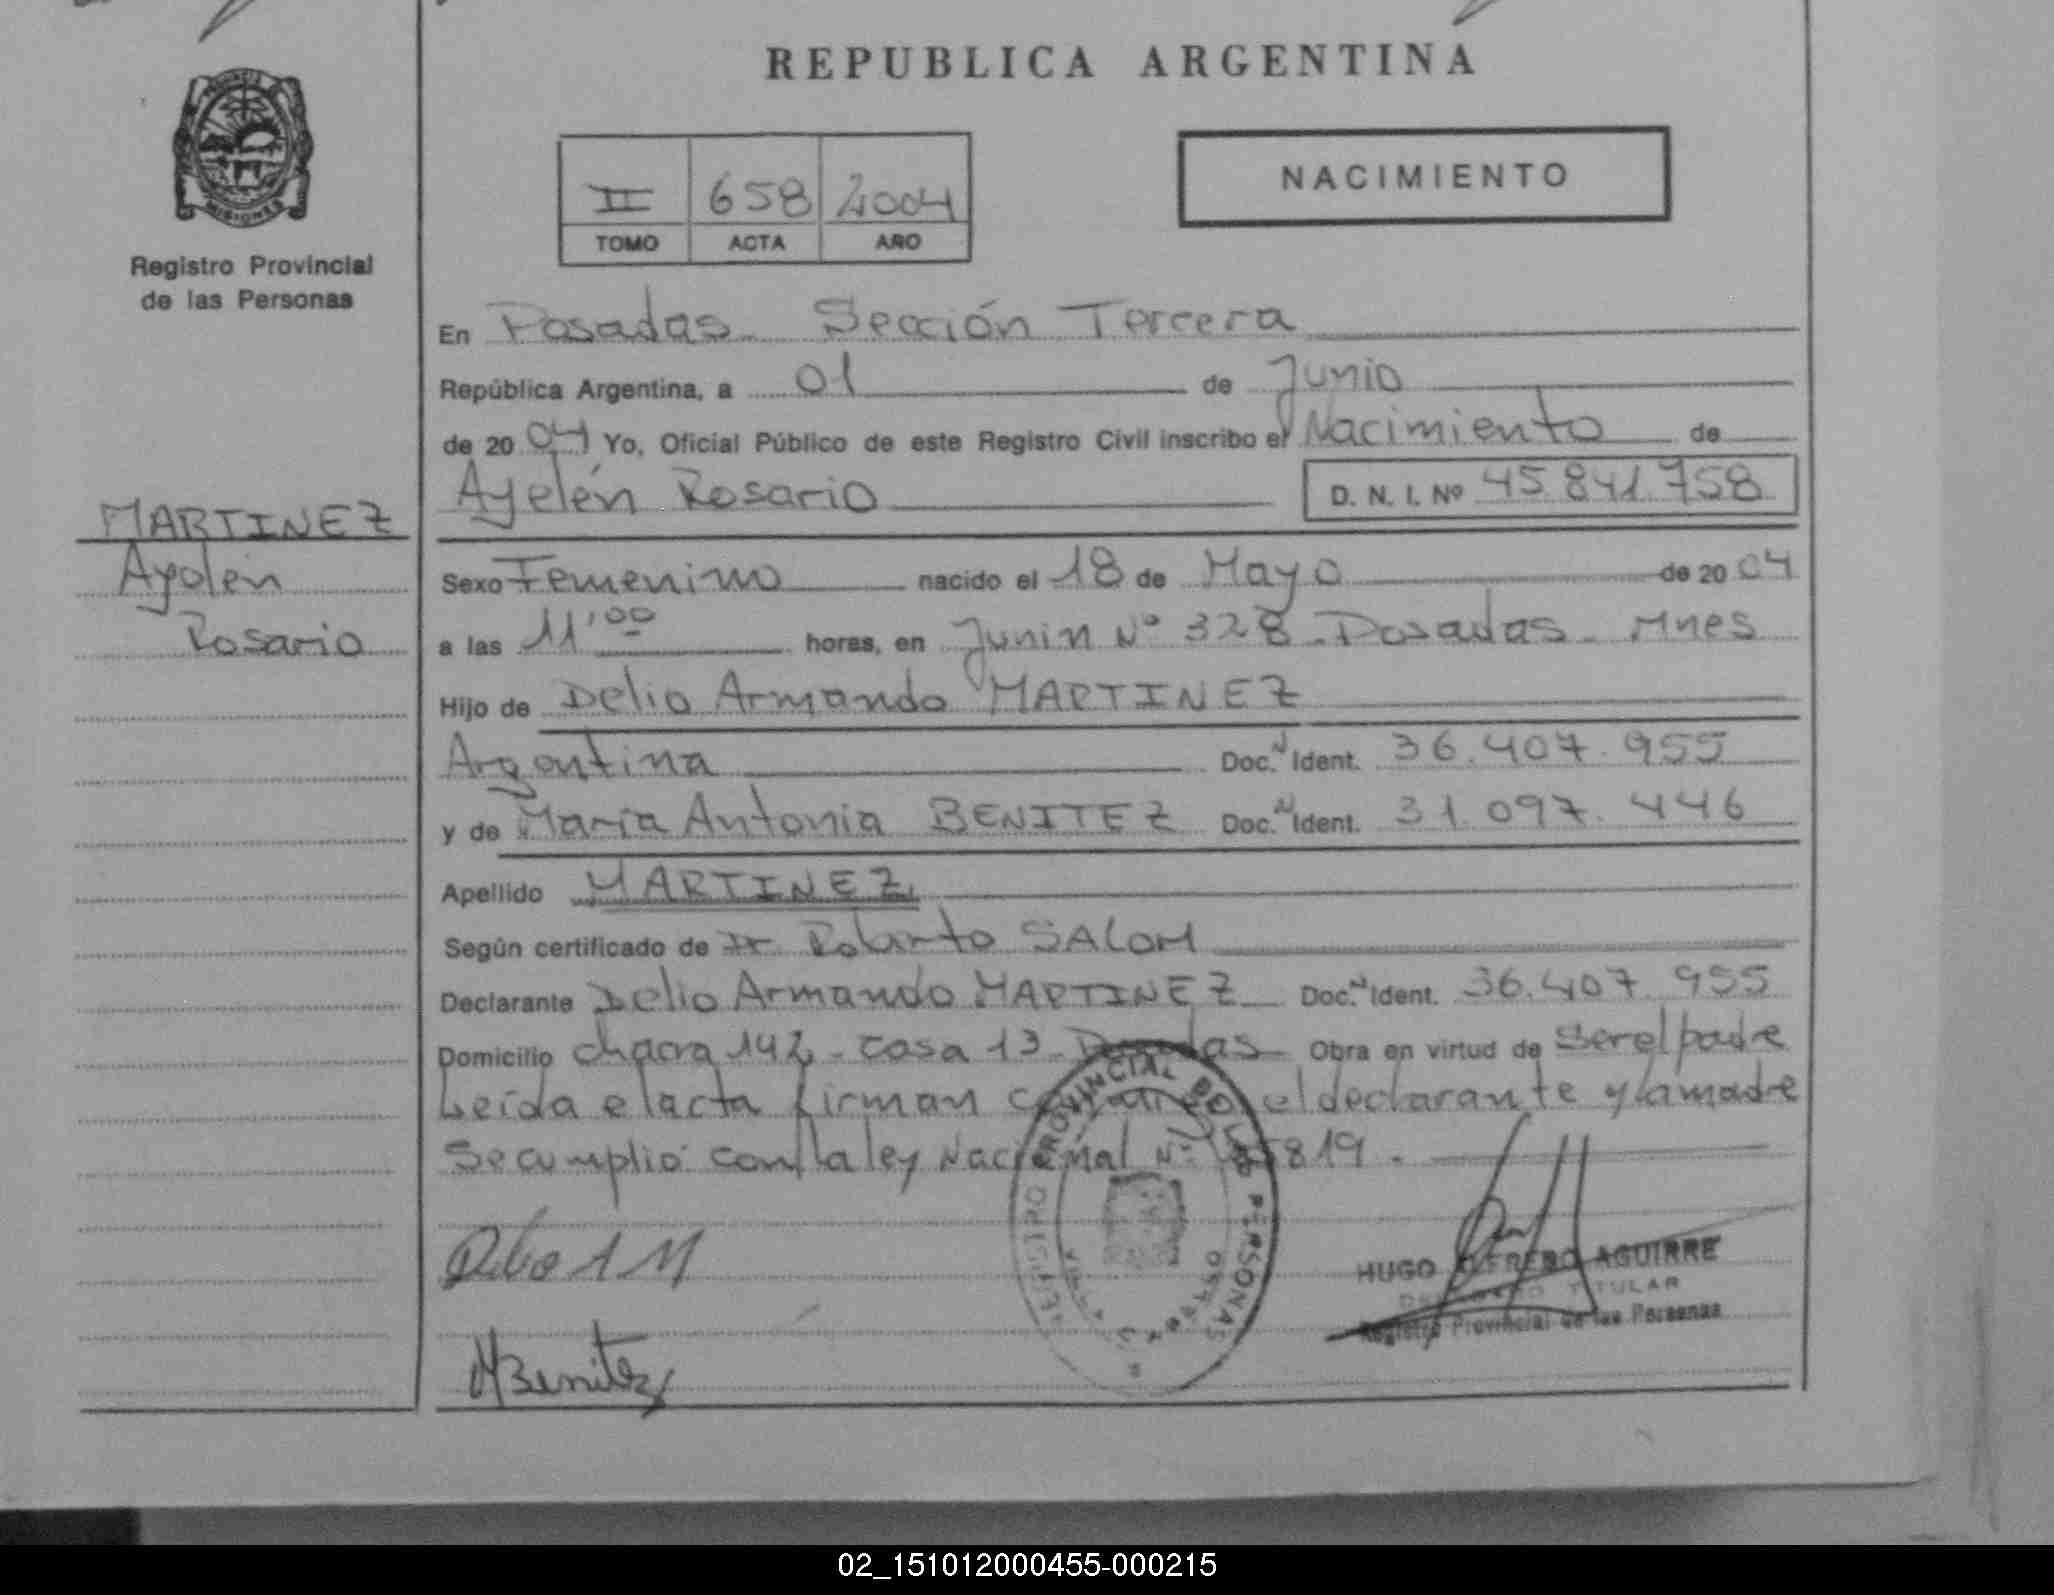 REPUBLICA ARGENTINA
MISIONES
Registro Provincial
de las Personas
II 658 2004
TOMO ACTA AÑO
NACIMIENTO
En Posadas Sección Tercera
República Argentina, a 01 de Junio
de 20 04 Yo, Oficial Público de este Registro Civil inscribo el Nacimiento de
Ayelén Rosario D. N. I. Nº 45.841.758
MARTINEZ
Ayelen
Rosario
Sexo Femenino nacido el 18 de Mayo de 20 04
a las 11'00 horas, en Junin Nº 328 - Posadas - Mnes
Hijo de Delio Armando MARTINEZ
Argentina Doc. N Ident. 36.407.955
y de Maria Antonia BENITEZ Doc. N Ident. 31.097.446
Apellido MARTINEZ
Según certificado de Dr. Roberto SALOM
Declarante Delio Armando MARTINEZ Doc. N Ident. 36.407.955
Domicilio chacra 142 - casa 13 - Posadas Obra en virtud de ser el padre
Leída el acta firman el declarante y la madre
Se cumplio con la ley Nacional Nº 819.
REGISTRO PROVINCIAL DE LAS PERSONAS
HUGO ALFREDO AGUIRRE
DELEGADO TITULAR
Registro Provincial de las Personas
MBenitez
02_151012000455-000215